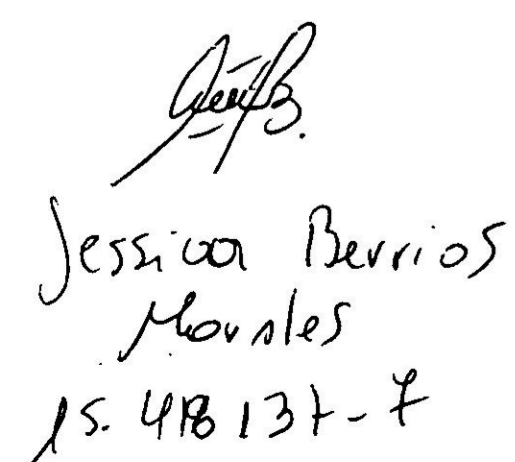 Jessica Berrios
Morales
15.418137-7